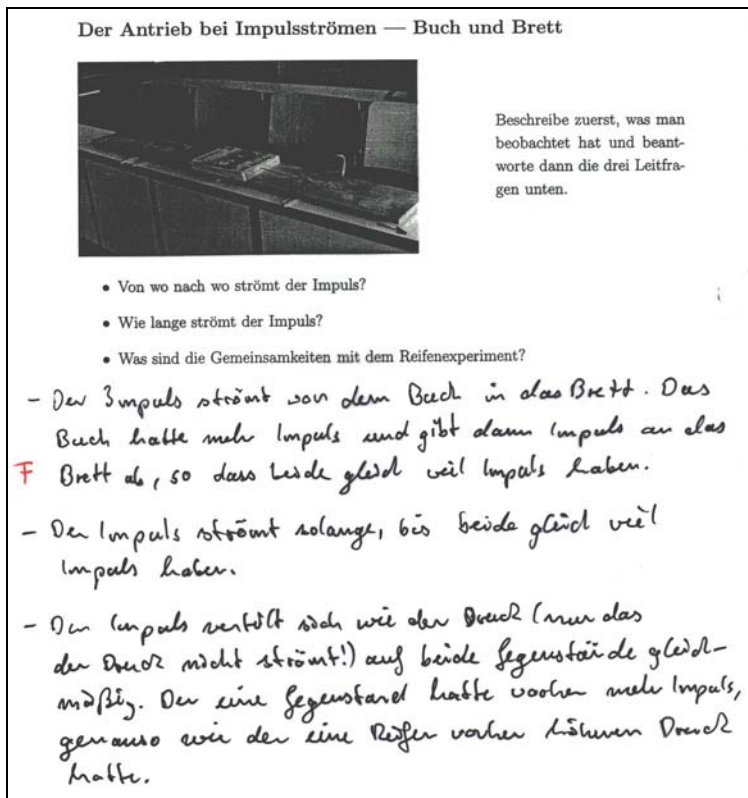 Der Antrieb bei Impulsströmen — Buch und Brett
Beschreibe zuerst, was man
beobachtet hat und beant-
worte dann die drei Leitfra-
gen unten.
• Von wo nach wo strömt der Impuls?
• Wie lange strömt der Impuls?
• Was sind die Gemeinsamkeiten mit dem Reifenexperiment?
- Der Impuls strömt von dem Buch in das Brett. Das
Buch hatte mehr Impuls und gibt dann Impuls an das
F Brett ab, so dass beide gleich veil Impuls haben.
- Der Impuls strömt solange, bis beide gleich viel
Impuls haben.
- Der Impuls verteilt sich wie der Druck (nur das
der Druck nicht strömt!) auf beide Gegenstände gleich-
mäßig. Der eine Gegenstand hatte vorher mehr Impuls,
genauso wie der eine Reifen vorher höheren Druck
hatte.